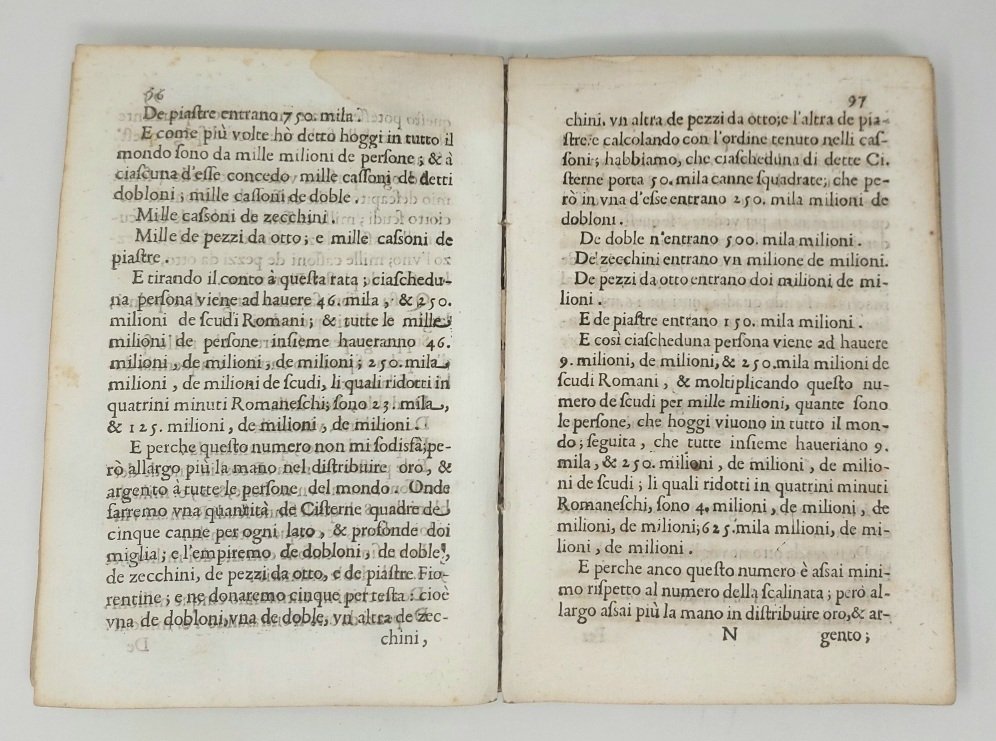 96
De piaſtre entrano 750. mila.
E come più volte hò detto hoggi in tutto il
mondo ſono da mille milioni de perſone; & à
ciaſcuna d'eſſe concedo mille caſſoni de detti
dobloni; mille caſſoni de doble.
Mille caſſoni de zecchini.
Mille de pezzi da otto; e mille caſsoni de
piaſtre.
E tirando il conto à queſta rata; ciaſchedu-
na perſona viene ad hauere 46. mila, & 250.
milioni de ſcudi Romani; & tutte le mille
milioni de perſone inſieme haueranno 46.
milioni, de milioni, de milioni; 250. mila
milioni, de milioni de ſcudi, li quali ridotti in
quatrini minuti Romaneſchi; ſono 23. mila,
& 125. milioni, de milioni, de milioni.
E perche queſto numero non mi ſodisfà; pe-
rò allargo più la mano nel diſtribuire oro, &
argento à tutte le perſone del mondo. Onde
faremo vna quantità de Ciſterne quadre de
cinque canne per ogni lato, & profonde doi
miglia; e l'empiremo de dobloni, de doble,
de zecchini, de pezzi da otto, e de piaſtre Fio-
rentine; e ne donaremo cinque per teſta: cioè
vna de dobloni, vna de doble, vn altra de zec-
chini,
97
chini. vn altra de pezzi da otto; e l'altra de pia-
ſtre: e calcolando con l'ordine tenuto nelli caſ-
ſoni; habbiamo, che ciaſcheduna di dette Ci.
ſterne porta 50. mila canne ſquadrate; che pe-
rò in vna d'eſse entrano 250. mila milioni de
dobloni.
De doble n'entrano 500. mila milioni.
De zecchini entrano vn milione de milioni.
De pezzi da otto entrano doi milioni de mi-
lioni.
E de piaſtre entrano 150. mila milioni.
E così ciaſcheduna perſona viene ad hauere
9. milioni, de milioni, & 250. mila milioni de
ſcudi Romani, & moltiplicando queſto nu-
mero de ſcudi per mille milioni, quante ſono
le perſone, che hoggi viuono in tutto il mon-
do; ſeguita, che tutte inſieme haueriano 9.
mila, & 250. milioni, de milioni, de milio-
ni de ſcudi; li quali ridotti in quatrini minuti
Romaneſchi, ſono 4. milioni, de milioni, de
milioni, de milioni; 625. mila milioni, de mi-
lioni, de milioni.
E perche anco queſto numero è aſsai mini-
mo riſpetto al numero della ſcalinata; però al-
largo aſsai più la mano in diſtribuire oro, & ar-
N gento;
De